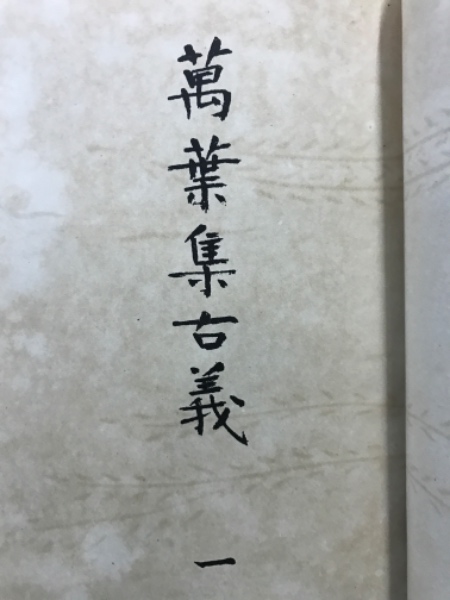 萬葉集古義
一